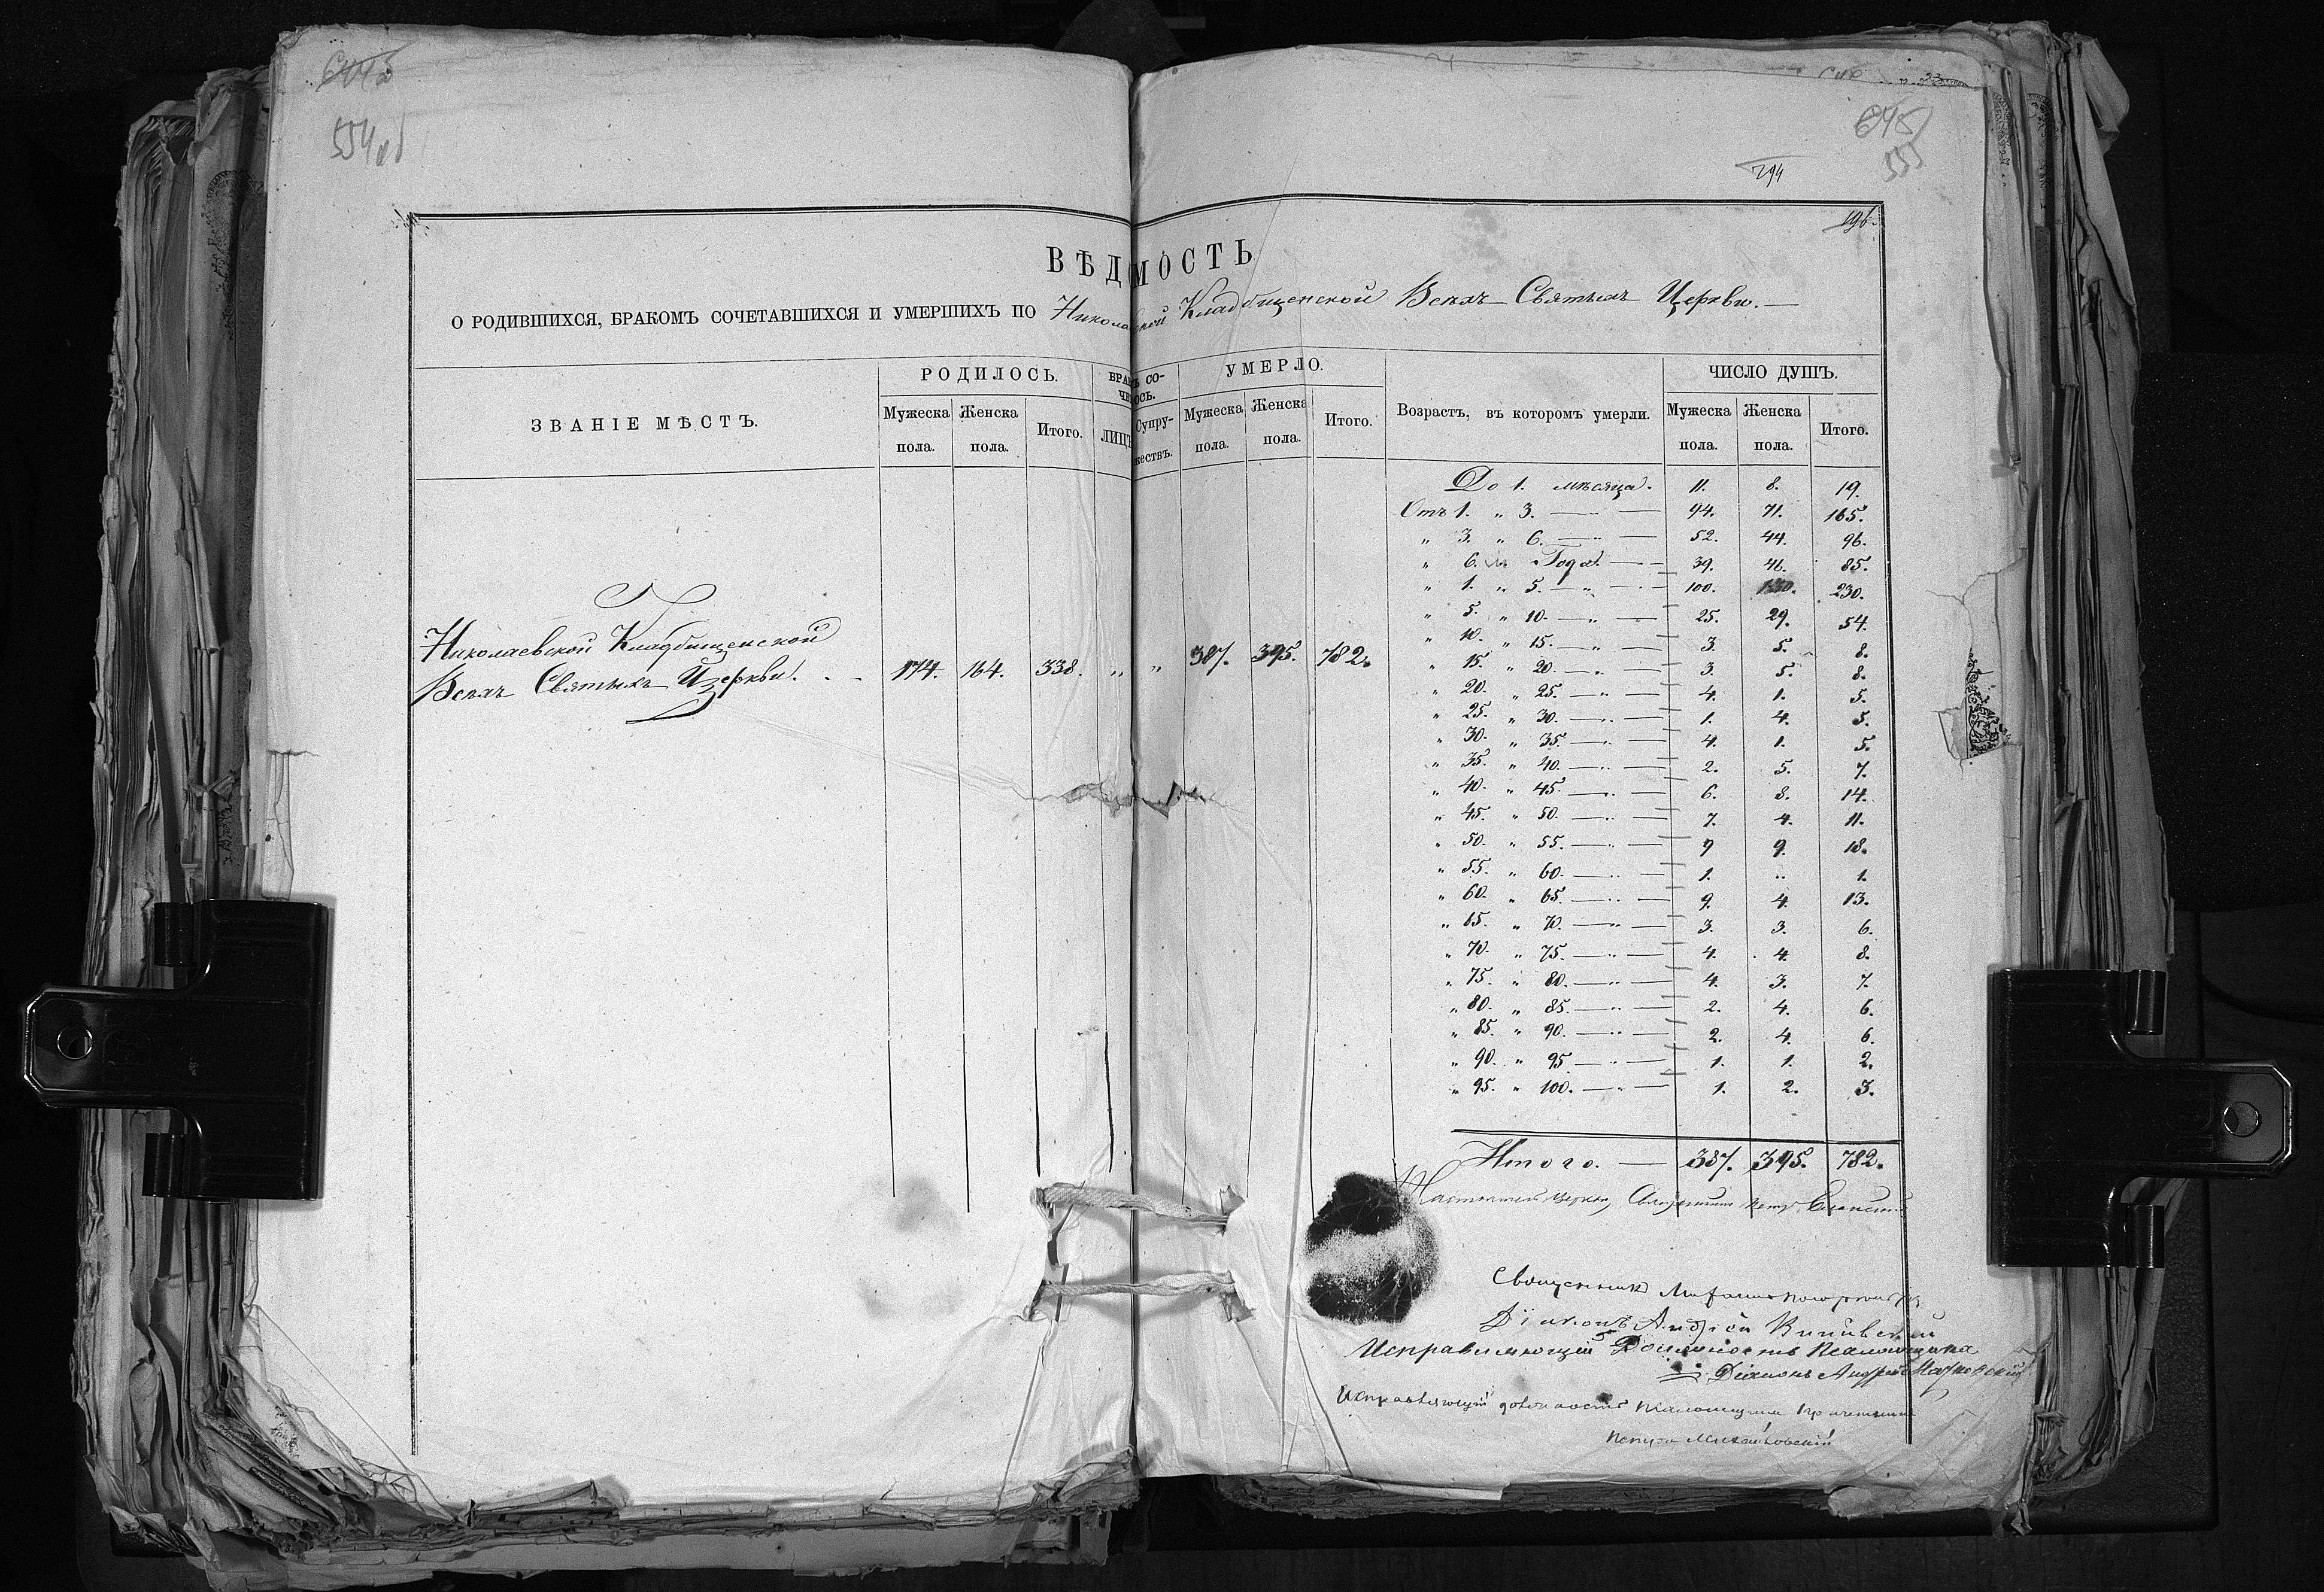 554 об
645
555
794
196.
ВѢДОМОСТЬ
О РОДИВШИХСЯ, БРАКОМЪ СОЧЕТАВШИХСЯ И УМЕРШИХЪ ПО Николаевской Кладбищенской Всѣхъ Святыхъ Церкви.
ЗВАНІЕ МѢСТЪ. РОДИЛОСЬ. УМЕРЛО. Возрастъ, въ которомъ умерли. ЧИСЛО ДУШЪ.
Мужеска пола. Женска пола. Итого. Мужеска пола. Женска пола. Итого. Мужеска пола. Женска пола. Итого.
До 1. мѣсяца. 11. 8. 19.
Отъ 1. " 3. — " — 94. 71. 165.
" 3. " 6. — " — 52. 44. 96.
" 6. Года. — 39. 46. 85.
" 1. " 5. — " — 100. 130. 230.
" 5. " 10. — " — 25. 29. 54.
" 10. " 15. — " — 3. 5. 8.
Николаевской Кладбищенской
Всѣхъ Святыхъ Церкви. 174. 164. 338. " " 387. 395. 782.
" 15. " 20. — " — 3. 5. 8.
" 20. " 25. — " — 4. 1. 5.
" 25. " 30. — " — 1. 4. 5.
" 30. " 35. — " — 4. 1. 5.
" 35. " 40. — " — 2. 5. 7.
" 40. " 45. — " — 6. 8. 14.
" 45. " 50. — " — 7. 4. 11.
" 50. " 55. — " — 9 9. 18.
" 55. " 60. — " — 1. " 1.
" 60. " 65. — " — 9. 4. 13.
" 65. " 70. — " — 3. 3. 6.
" 70. " 75. — " — 4. 4. 8.
" 75. " 80. — " — 4. 3. 7.
" 80. " 85. — " — 2. 4. 6.
" 85. " 90. — " — 2. 4. 6.
" 90. " 95. — " — 1. 1. 2.
" 95. " 100. — " — 1. 2. 3.
Итого. — 387. 395. 782.
Настоятель Церкви, Священникъ Петр
Священникъ
Діаконъ Андрей
Исправляющій Должность Псаломщика
Діаконъ Андрей
Исправляющій должность Псаломщика